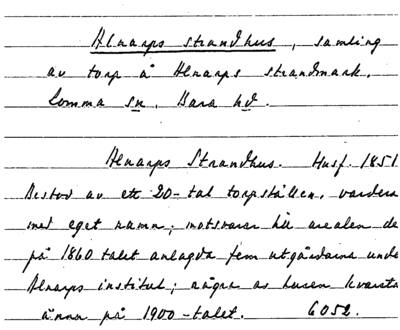 Alnarps strandhus, samling
av torp å Alnarps strandmark.
Lomma sn, Bara hd.
Alnarps Strandhus. Husf. 1851
Bestod av ett 20-tal torpställen, vardera
med eget namn; motsvarar till arealen de
på 1860 talet anlagda fem utgårdarna unde
Alnarps institut; några av husen kvarsta
ännu på 1900-talet. 6052.